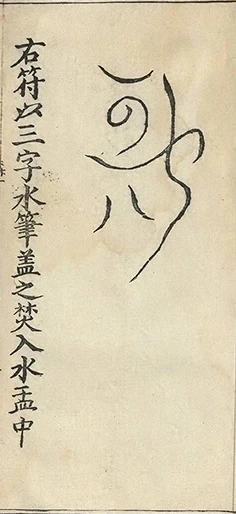 右符以三字水筆盖之焚入水盂中